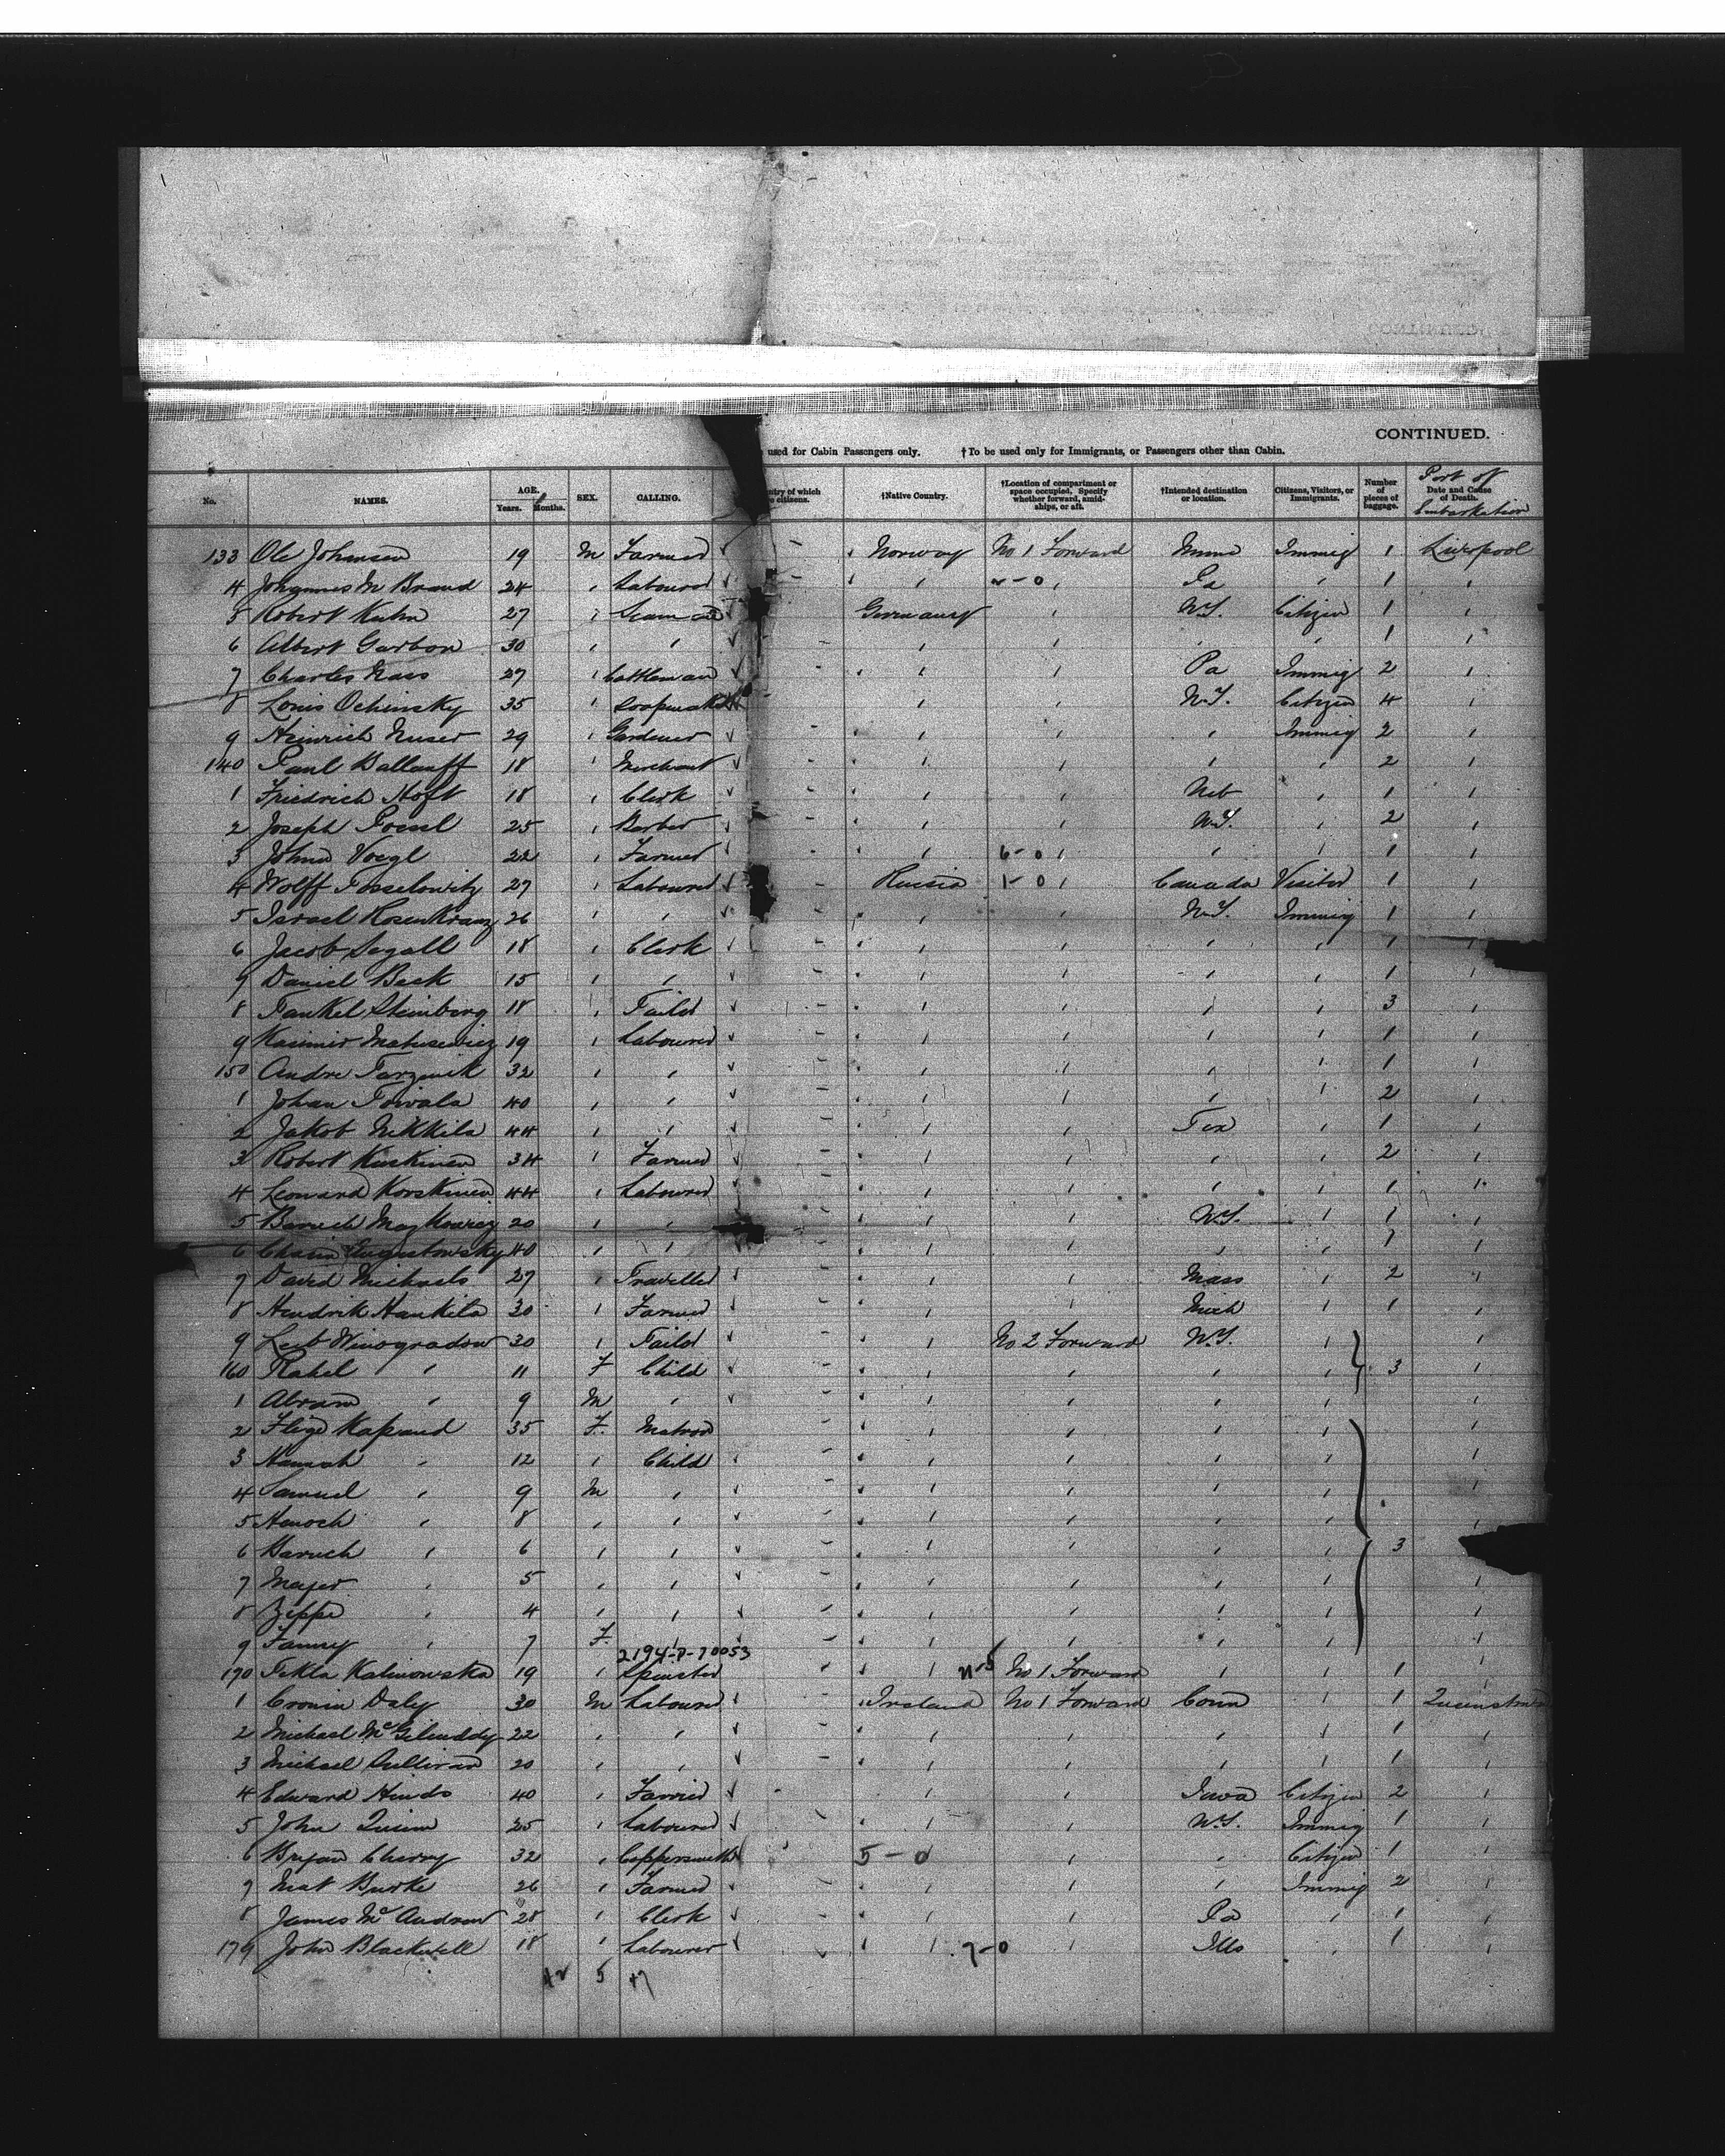 CONTINUED.
used for Cabin Passengers only. †To be used only for Immigrants, or Passengers other than Cabin.
No. NAMES. AGE. Years. Months. SEX. CALLING. ntry of which citizens. †Native Country. †Location of compartment or space occupied. Specify whether forward, amidships, or aft. †Intended destination or location. Citizens, Visitors, or Immigrants. Number of pieces of baggage. Date and Cause of Death. Port of Embarkation
133 Ole Johansen 19 M Farmer Norway No 1 Forward Immig 1 Liverpool
4 Johannes M Brand 24 " Labourer " " Pa " 1 "
5 Robert Kuhn 27 " Seaman Germany " N.Y. Citizen 1 "
6 Albert Garbon 30 " " " " " " 1 "
7 Charles 27 " Cattleman " " Pa Immig 2 "
8 Louis Ochinsky 35 " " " N.Y. Citizen 4 "
9 Heinrich 29 " Gardener " " " Immig 2 "
140 Paul Ballauff 18 " Merchant " " " " 2 "
1 Friedrich Hoft 18 " Clerk " " Neb " 1 "
2 Joseph 25 " Barber " " N.Y. " 2 "
3 Johann Voegl 22 " Farmer " 6-0 " " " 1 "
4 Wolff Josselowitz 27 " Labourer Russia 1-0 " Canada Visitor 1 "
5 Israel Rosenkranz 26 " " " " N.Y. Immig 1 "
6 Jacob Segall 18 " Clerk " " " " 1 "
7 Daniel Beck 15 " " " " " " 1 "
8 Jankel Steinberg 18 " Tailor " " " " 3 "
9 Kasimir Matusewicz 19 " Labourer " " " " 1 "
150 Andre 32 " " " " " " 1 "
1 Johan Toivala 40 " " " " " " 2 "
2 Jakob Nikkila 44 " " " " Tex " 1 "
3 Robert Kuskinen 34 " Farmer " " " " 2 "
4 Leonard Korskinen 44 " Labourer " " " " 1 "
5 Baruch 20 " " " " N.Y. " 1 "
6 Chaim Augustowsky 40 " " " " " " 1 "
7 David Michaels 27 " Traveller " " Mass " 2 "
8 Hendrik Hankila 30 " Farmer " " Mich " 1 "
9 Leib Winogradow 30 " Tailor " No 2 Forward N.Y. " "
160 Rahel " 11 F Child " " " " 3 "
1 Abram " 9 M " " " " " "
2 Kapand 35 F Matron " " " " "
3 Hannah " 12 " Child " " " " "
4 Samuel " 9 M " " " " " "
5 Henoch " 8 " " " " " " "
6 Baruch " 6 " " " " " " 3
7 Mayer " 5 " " " " " " "
8 Zippe " 4 " " " " " " "
9 Fanny " 7 F " " " " " "
2194-P-70053
170 Tekla Kalinowska 19 " Spinster " No 1 Forward " " 1 "
1 Daly 30 M Labourer Ireland No 1 Forward Conn " 1 Queenstown
2 Michael McGilcuddy 22 " " " " " " 1 "
3 Michael Sullivan 20 " " " " " " 1 "
4 Edward Hinds 40 " " " Iowa Citizen 2 "
5 John Quinn 25 " Labourer " " N.Y. Immig 1 "
6 Bryan Cherry 32 " Coppersmith 5-0 " " Citizen 1 "
7 Mat Burke 26 " Farmer " " " Immig 2 "
8 James McAndrew 28 " Clerk " " Pa " 1 "
179 John Blackwell 18 " Labourer " 7-0 " Ills " 1 "
42 5 47